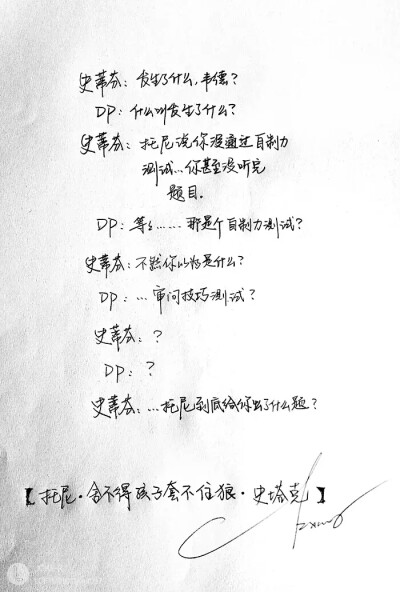 史蒂芬：发生了什么，韦德？
DP：什么叫发生了什么？
史蒂芬：托尼说你没通过自制力
测试…你甚至没听完
题目.
DP：等等……那是个自制力测试？
史蒂芬：不然你以为是什么？
DP：…审问技巧测试？
史蒂芬：？
DP：？
史蒂芬：…托尼到底给你出了什么题？
【托尼·舍不得孩子套不住狼·史塔克】